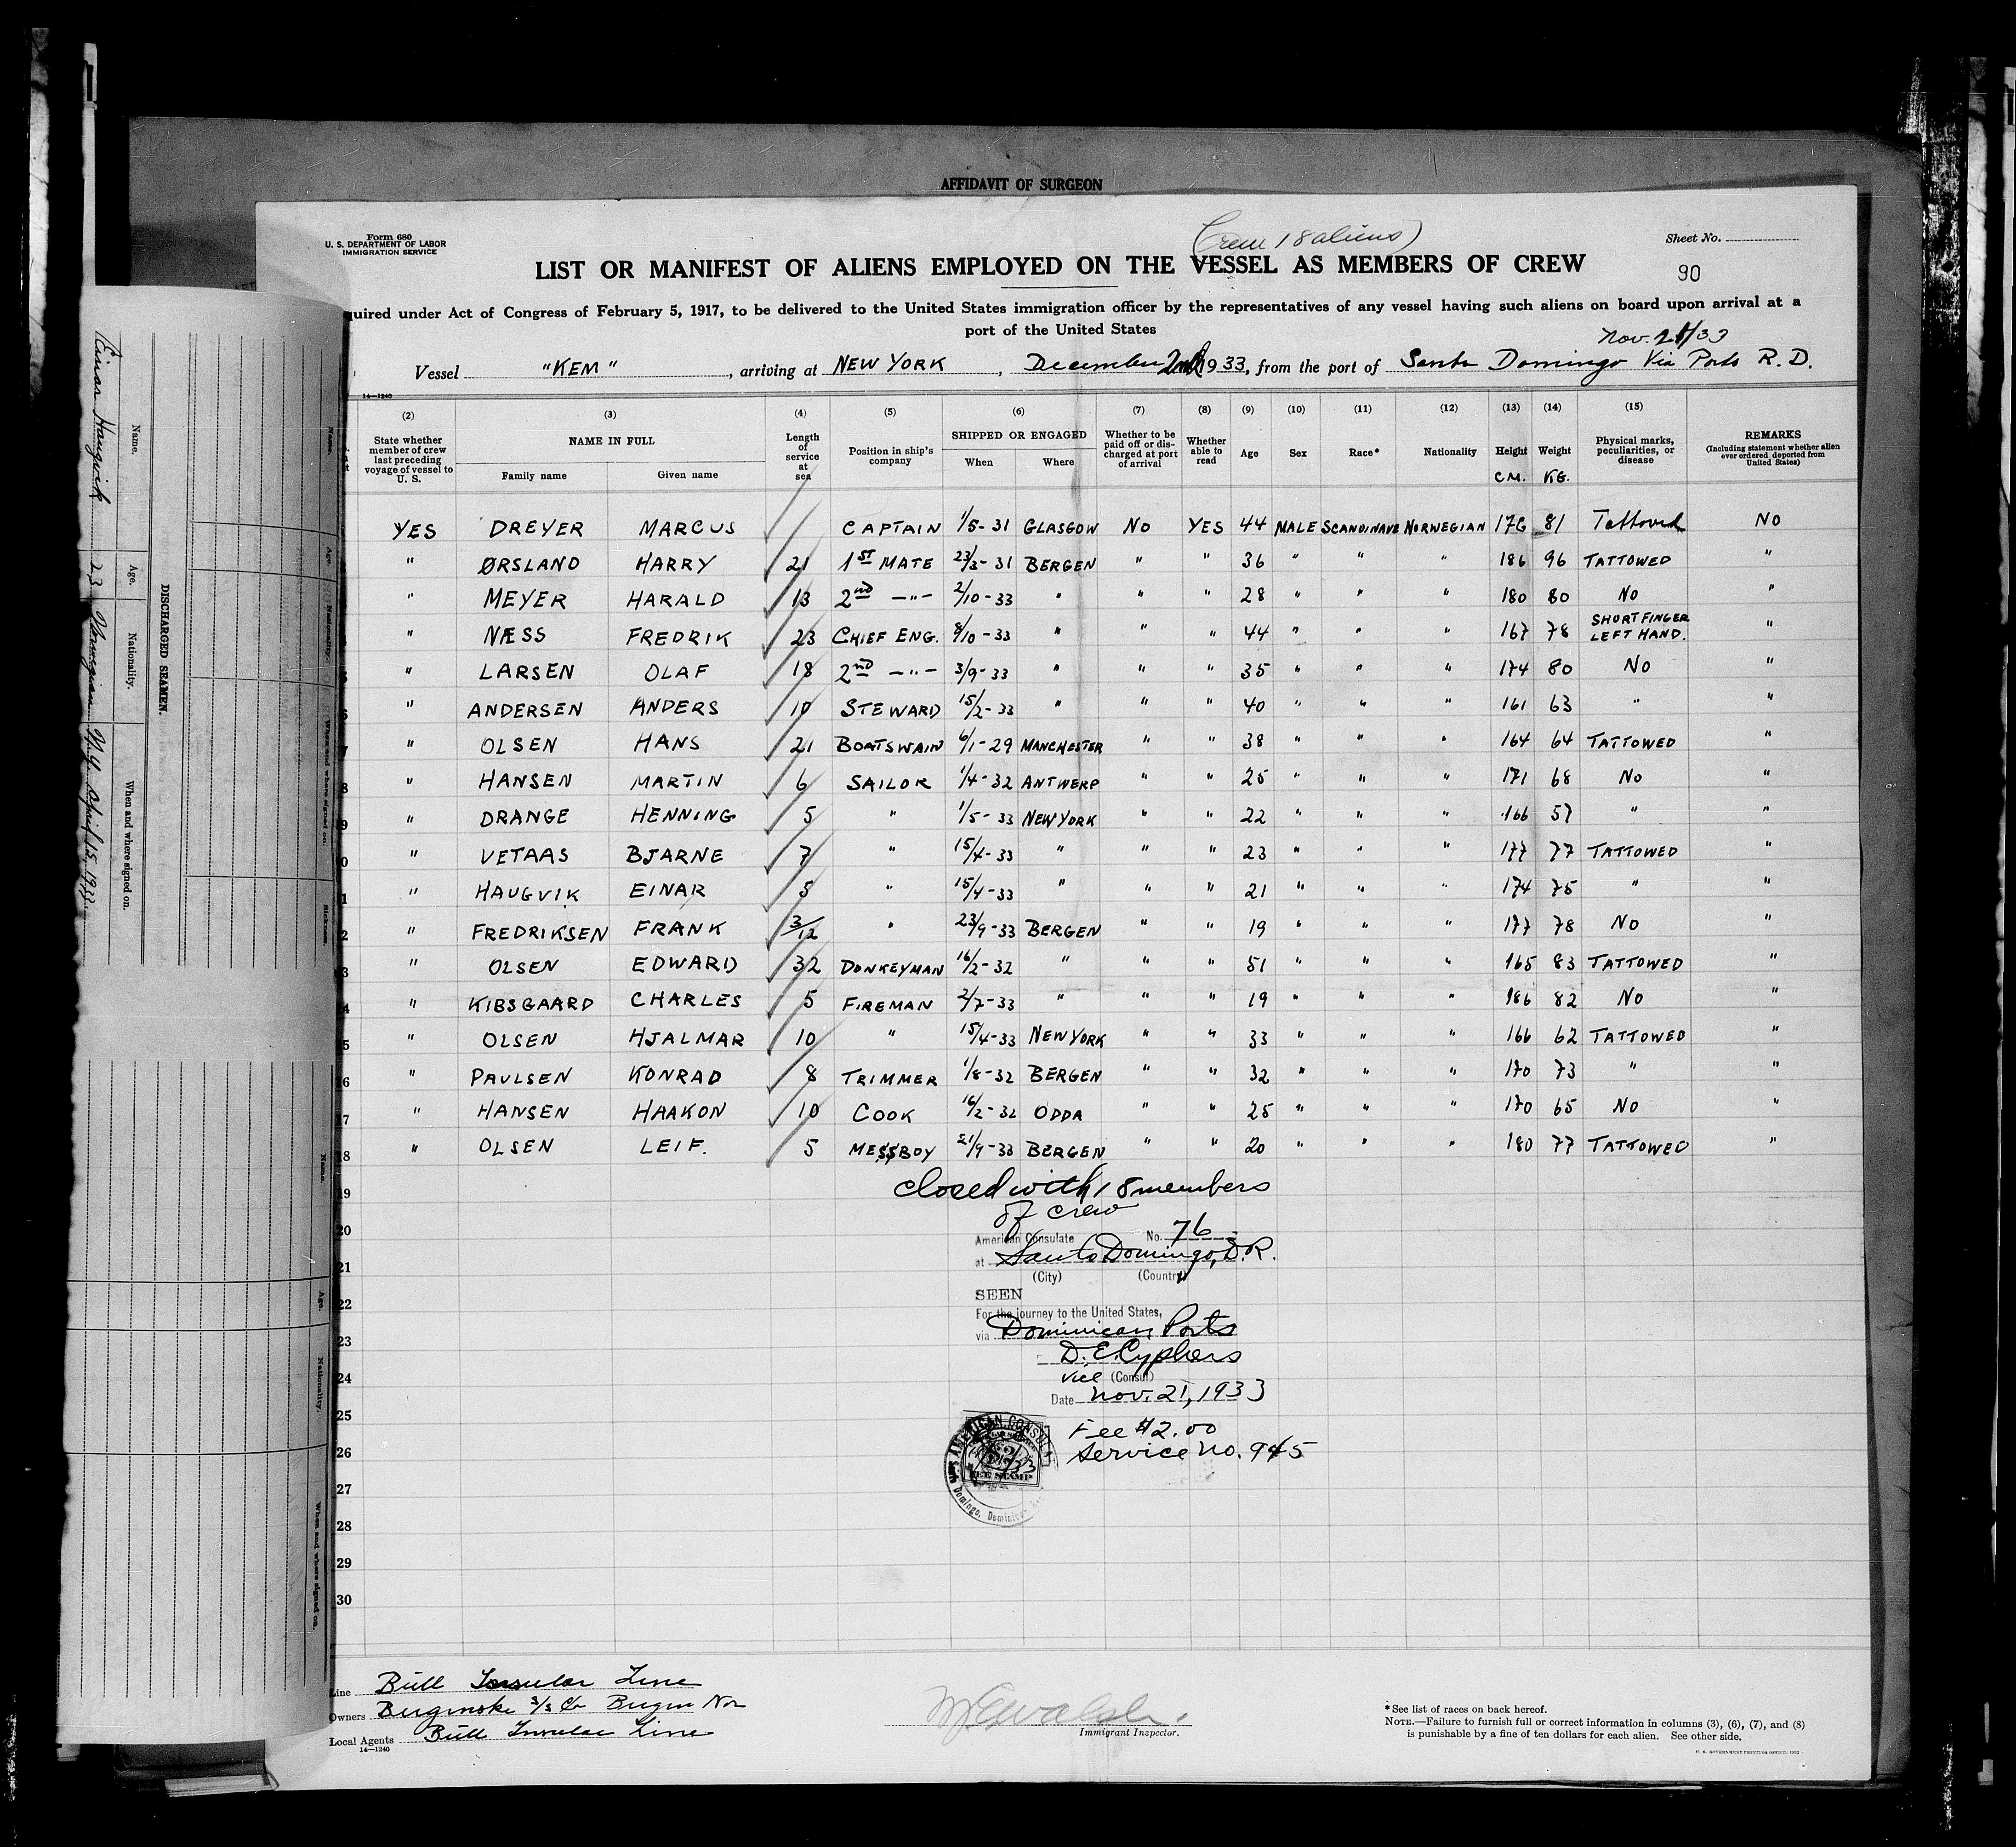 AFFIDAVIT OF SURGEON
Form 680
U. S. DEPARTMENT OF LABOR
IMMIGRATION SERVICE
(Crew 18 aliens)
Sheet No.
LIST OR MANIFEST OF ALIENS EMPLOYED ON THE VESSEL AS MEMBERS OF CREW
90
uired under Act of Congress of February 5, 1917, to be delivered to the United States immigration officer by the representatives of any vessel having such aliens on board upon arrival at a
port of the United States
Nov. 21/33
Vessel "KEM", arriving at NEW YORK, December 2nd 1933, from the port of Santo Domingo Via Ports R. D.
14—1240
(2) (3) (4) (5) (6) (7) (8) (9) (10) (11) (12) (13) (14) (15)
State whether member of crew last preceding voyage of vessel to U. S. NAME IN FULL Family name Given name Length of service at sea Position in ship's company SHIPPED OR ENGAGED When Where Whether to be paid off or discharged at port of arrival Whether able to read Age Sex Race* Nationality Height C.M. Weight KG. Physical marks, peculiarities, or disease REMARKS (Including statement whether alien ever ordered deported from United States)
YES DREYER MARCUS CAPTAIN 1/5-31 GLASGOW NO YES 44 MALE SCANDINAVE NORWEGIAN 176 81 Tattoved NO
" ØRSLAND HARRY 21 1ST MATE 23/3-31 BERGEN " " 36 " " " 186 96 TATTOWED "
" MEYER HARALD 13 2nd —"— 2/10-33 " " " 28 " " " 180 80 NO "
" NÆSS FREDRIK 23 CHIEF ENG. 8/10-33 " " " 44 " " " 167 78 SHORT FINGER LEFT HAND. "
" LARSEN OLAF 18 2nd —"— 3/9-33 " " " 35 " " " 174 80 NO "
" ANDERSEN ANDERS 10 STEWARD 15/2-33 " " " 40 " " " 161 63 " "
" OLSEN HANS 21 BOATSWAIN 6/1-29 MANCHESTER " " 38 " " " 164 64 TATTOWED "
" HANSEN MARTIN 6 SAILOR 1/4-32 ANTWERP " " 25 " " " 171 68 NO "
" DRANGE HENNING 5 " 1/5-33 NEW YORK " " 22 " " " 166 57 " "
" VETAAS BJARNE 7 " 15/4-33 " " " 23 " " " 177 77 TATTOWED "
" HAUGVIK EINAR 5 " 15/4-33 " " " 21 " " " 174 75 " "
" FREDRIKSEN FRANK 3/12 " 23/9-33 BERGEN " " 19 " " " 177 78 NO "
" OLSEN EDWARD 32 DONKEYMAN 16/2-32 " " " 51 " " " 165 83 TATTOWED "
" KIBSGAARD CHARLES 5 FIREMAN 2/7-33 " " " 19 " " " 186 82 NO "
" OLSEN HJALMAR 10 " 15/4-33 NEW YORK " " 33 " " " 166 62 TATTOWED "
" PAULSEN KONRAD 8 TRIMMER 1/8-32 BERGEN " " 32 " " " 170 73 " "
" HANSEN HAAKON 10 COOK 16/2-32 ODDA " " 25 " " " 170 65 NO "
18 " OLSEN LEIF. 5 MESSBOY 21/9-33 BERGEN " " 20 " " " 180 77 TATTOWED "
19 closed with 18 members
of crew
20 American Consulate No. 76
at Santo Domingo, D.R.
21 (City) (Country)
SEEN
22 For the journey to the United States,
via Dominican Ports
23 D. E. Cyphers
24 vice (Consul)
Date Nov. 21, 1933
25 Fee $2.00
26 Service No. 945
AMERICAN CONSULA
FEE STAMP
Domingo, Dominican
27
28
29
30
Line Bull Insular Line
Owners Bergenske S/S Co Bergen Nor
Local Agents Bull Insular Line
14—1240
Immigrant Inspector.
*See list of races on back hereof.
NOTE.—Failure to furnish full or correct information in columns (3), (6), (7), and (8)
is punishable by a fine of ten dollars for each alien. See other side.
DISCHARGED SEAMEN.
Name. Age. Nationality. When and where signed on.
Einar Haugvik 23 Norwegian N.Y. April 15, 1933.
Name. Age. Nationality. When and where signed on.